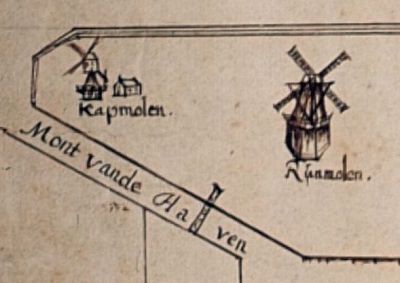 Kapmolen.
Rúnmolen.
Mont vande Haven